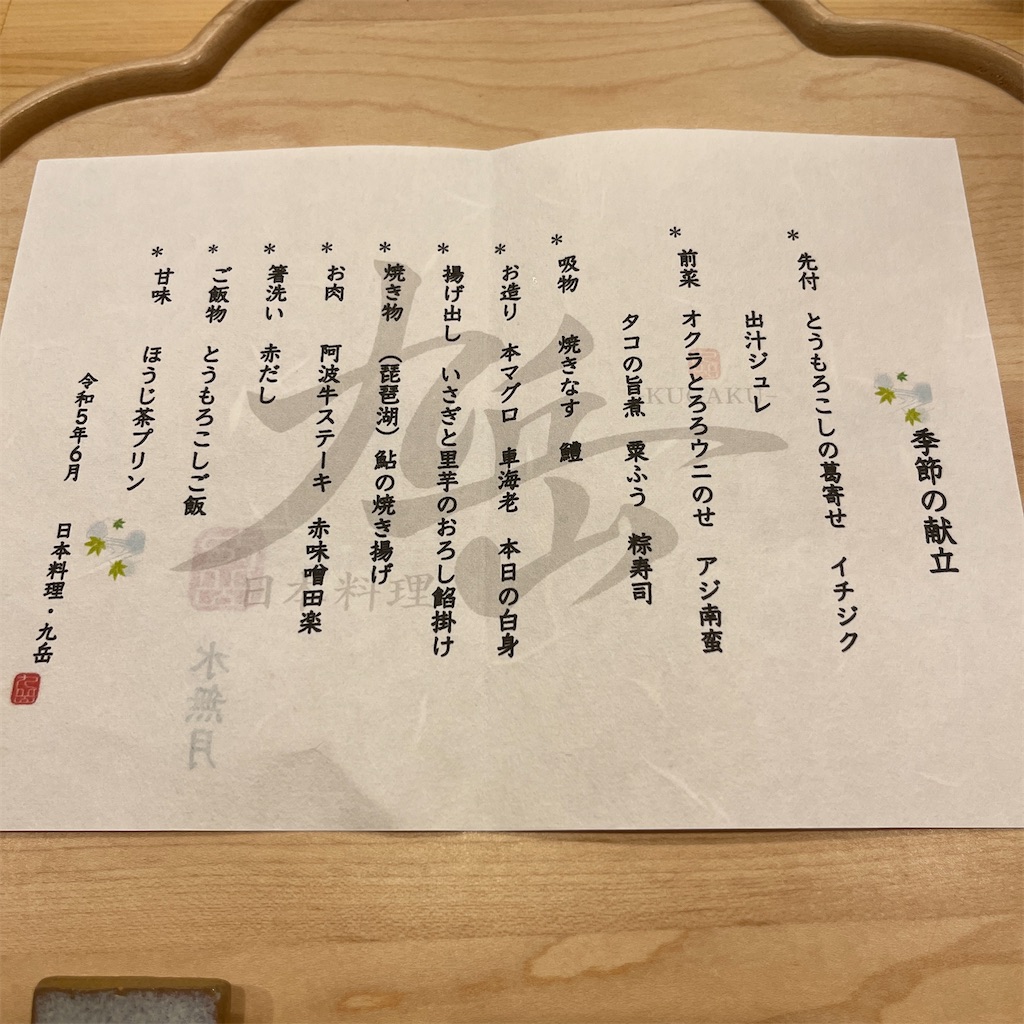 季節の献立
* 先付 とうもろこしの葛寄せ イチジク
出汁ジュレ
* 前菜 オクラとろろウニのせ アジ南蛮
タコの旨煮 粟ふう 粽寿司
* 吸物 焼きなす 鱧
* お造り 本マグロ 車海老 本日の白身
* 揚げ出し いさぎと里芋のおろし餡掛け
* 焼き物 (琵琶湖)鮎の焼き揚げ
* お肉 阿波牛ステーキ 赤味噌田楽
* 箸洗い 赤だし
* ご飯物 とうもろこしご飯
* 甘味 ほうじ茶プリン
令和5年6月 日本料理・九岳
九岳
-KUGAKU-
日本料理
水無月